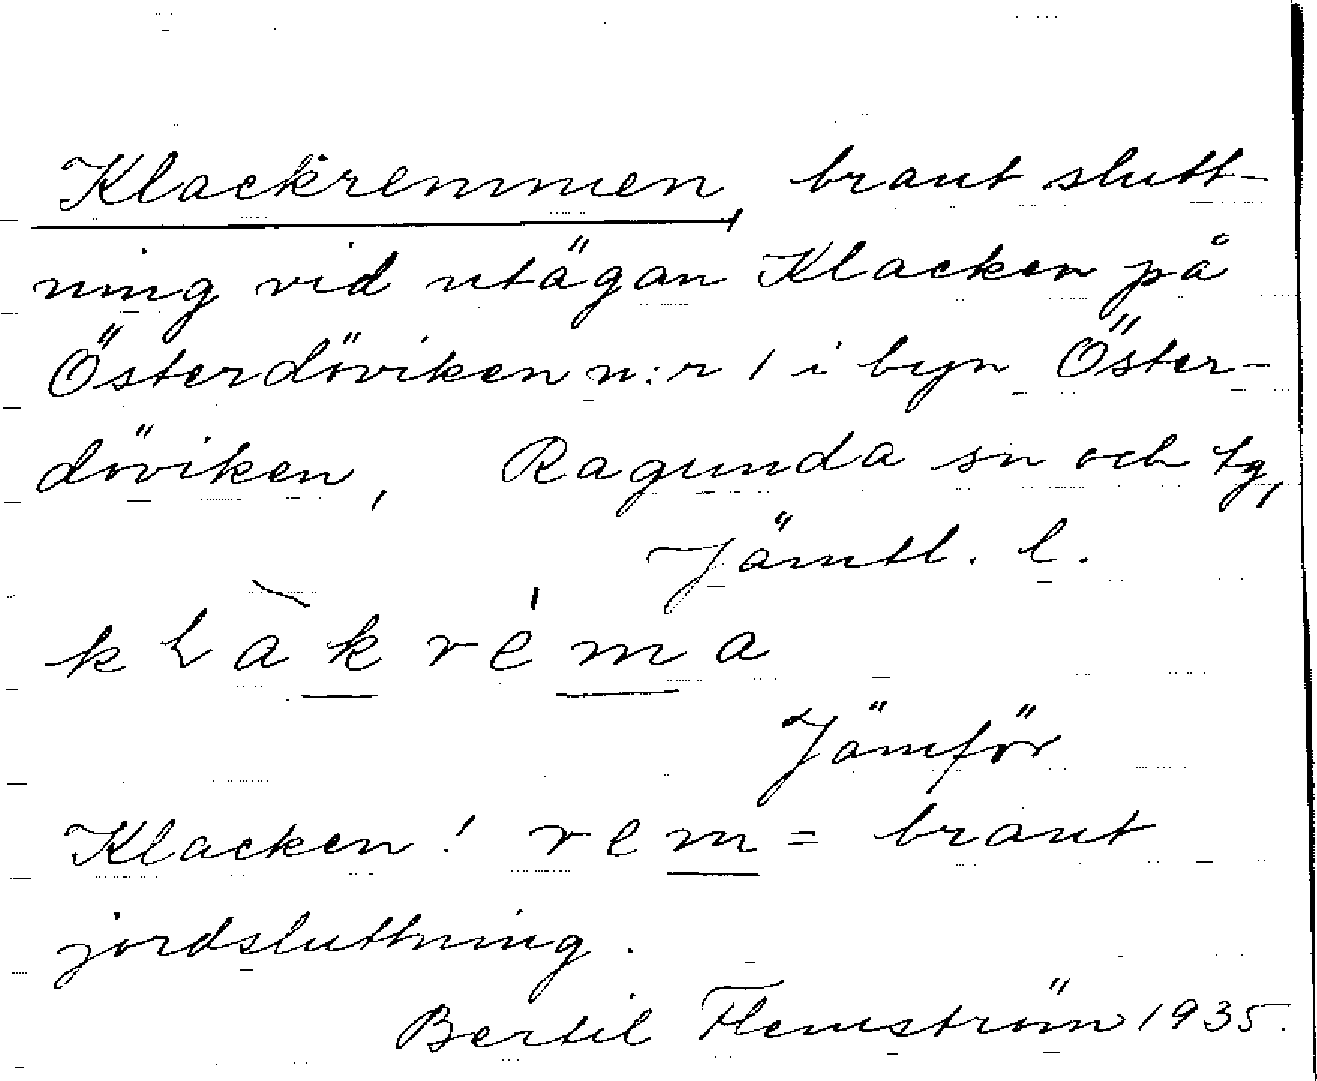 Klackremmen, brant slutt-
ning vid utägan Klacken på
Österdöviken n:r 1 i byn Öster-
döviken, Ragunda sn och tg,
Jämtl. l.
kLàkréma
Jämför
Klacken! rem = brant
jordsluttning.
Bertil Flemström 1935.